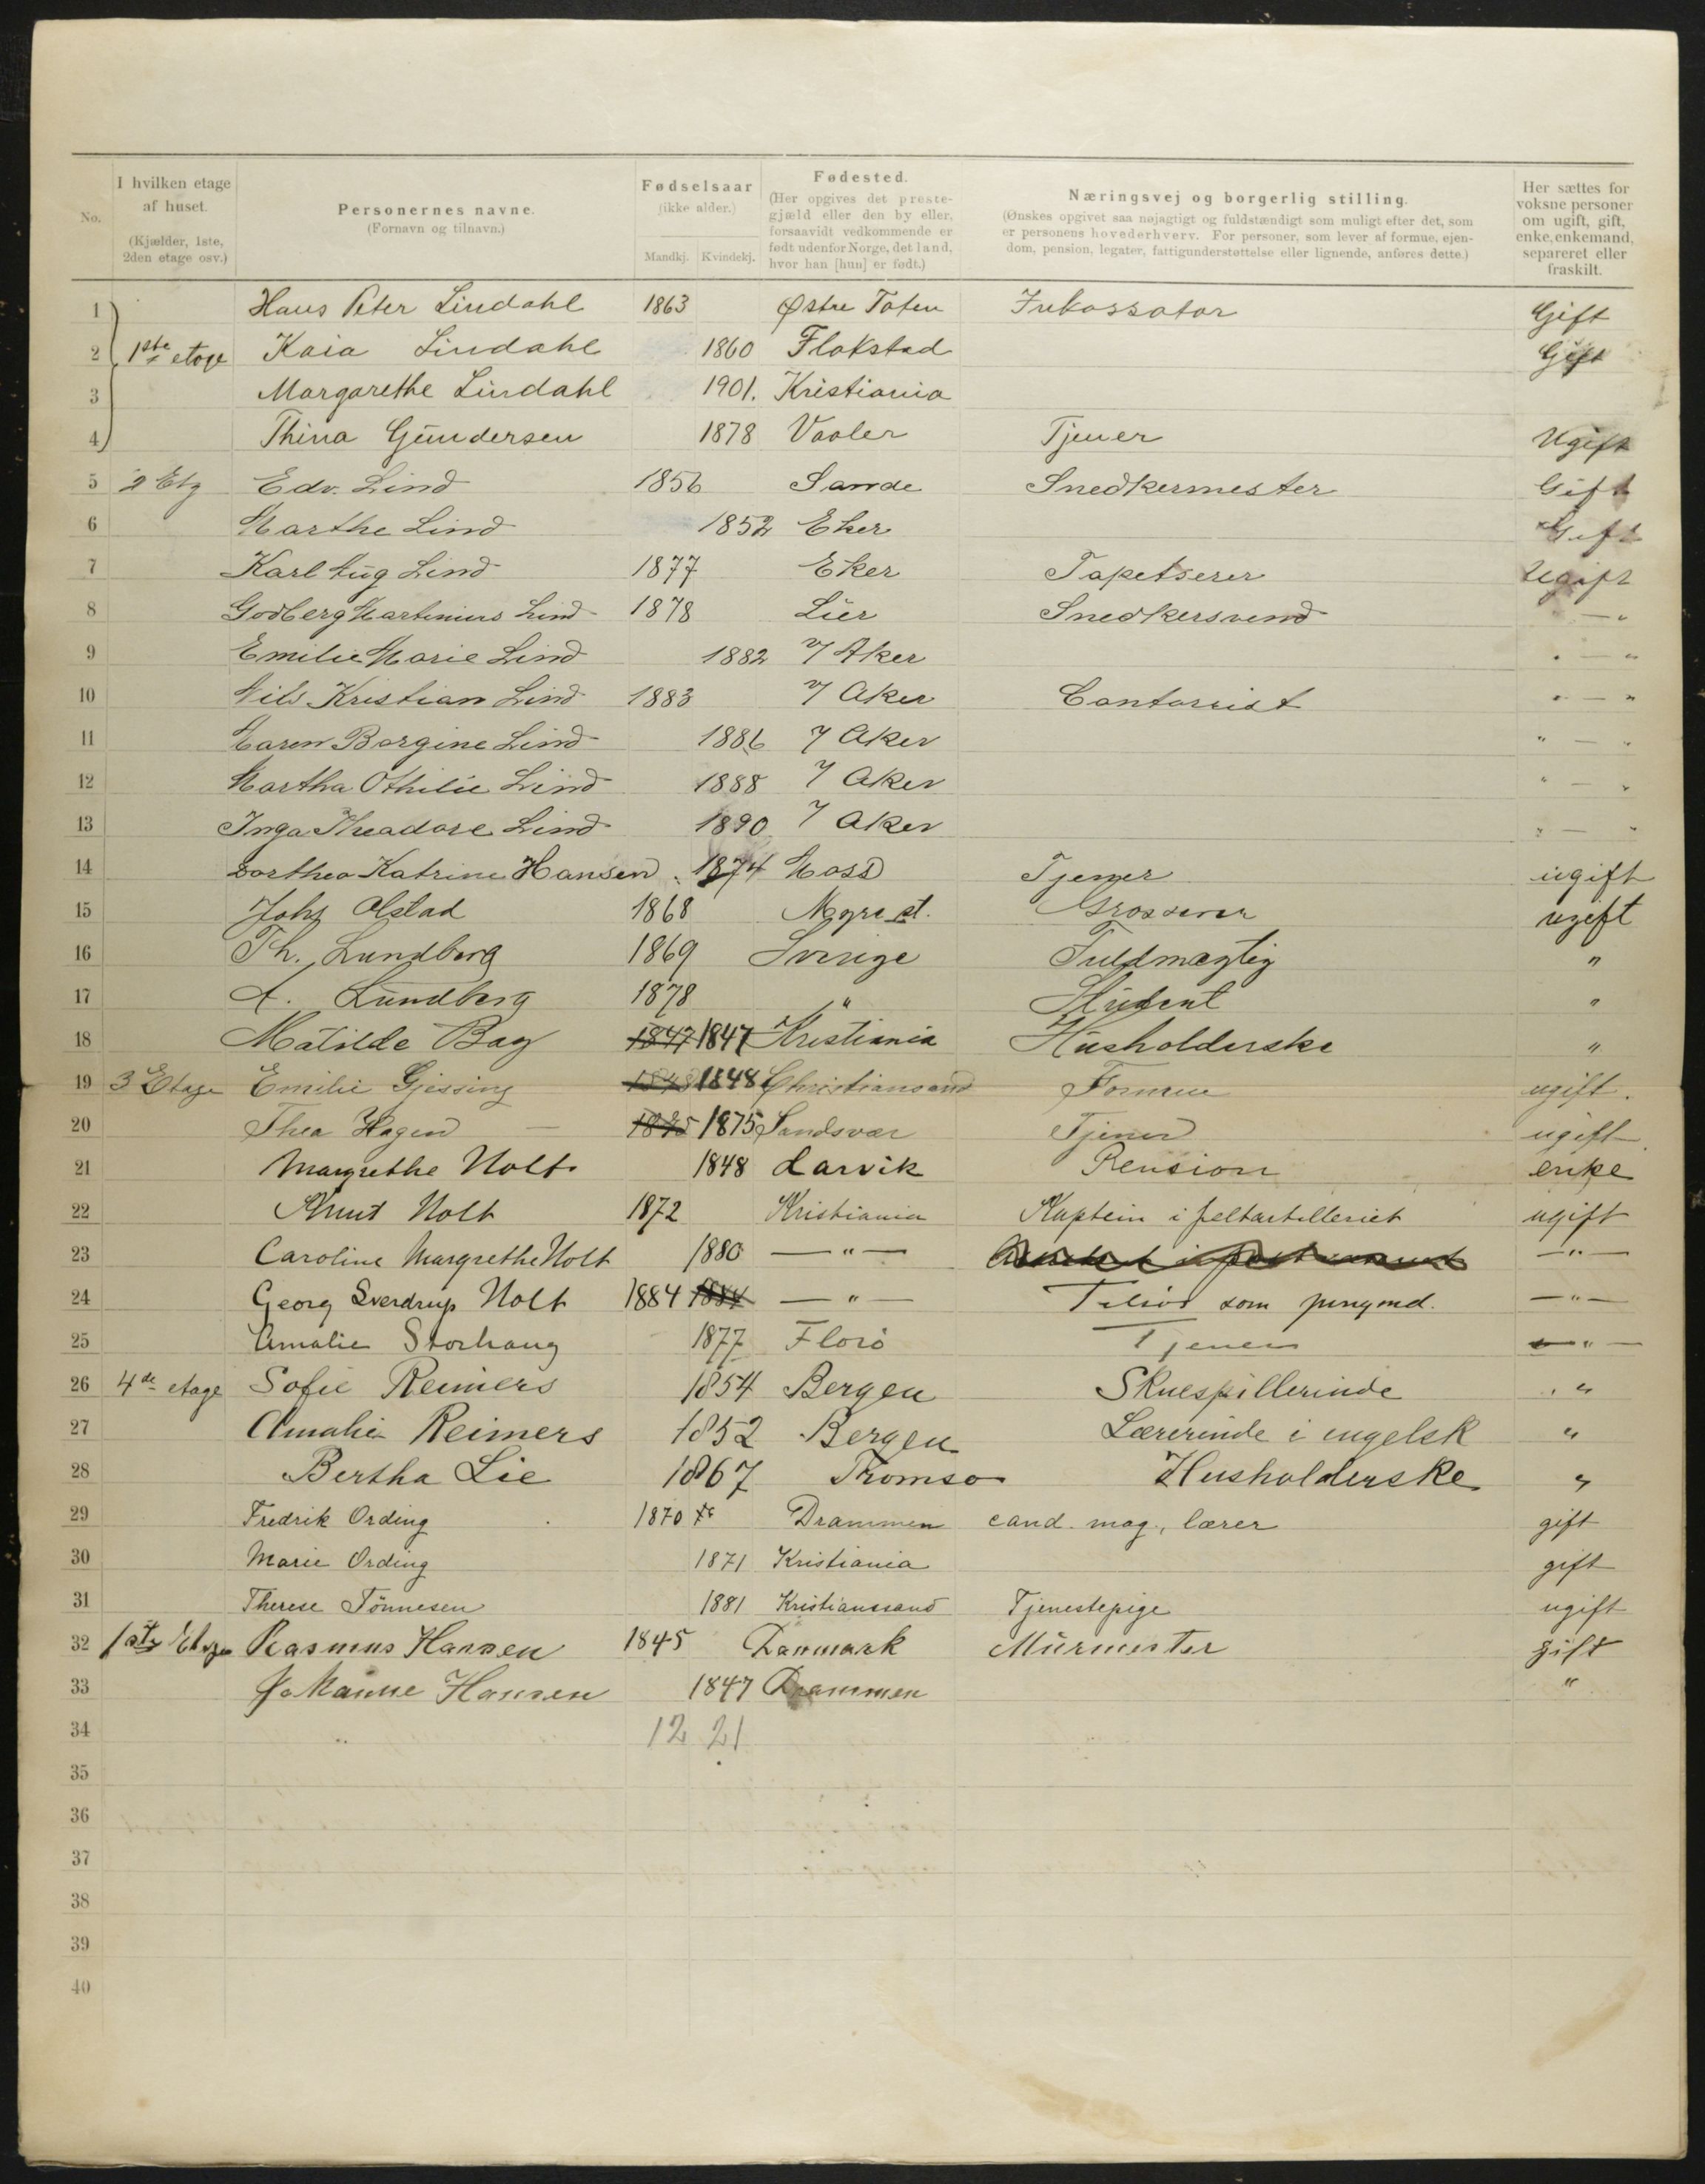 No. I hvilken etage af huset. (Kjælder, 1ste, 2den etage osv.) Personernes navne. (Fornavn og tilnavn.) Fødselsaar (ikke alder.) Mandkj. Kvindekj. Fødested. (Her opgives det prestegjæld eller den by eller, forsaavidt vedkommende er født udenfor Norge, det land, hvor han [hun] er født.) Næringsvej og borgerlig stilling. (Ønskes opgivet saa nøjagtigt og fuldstændigt som muligt efter det, som er personens hovederhverv. For personer, som lever af formue, ejendom, pension, legater, fattigunderstøttelse eller lignende, anføres dette.) Her sættes for voksne personer om ugift, gift, enke, enkemand, separeret eller fraskilt.
1 Hans Peter Lindahl 1863 Østre Toten Inkassator Gift
2 1ste etage Kaia Lindahl 1860 Flakstad Gift
3 Margarethe Lindahl 1901. Kristiania
4 Thina Gundersen 1878 Vaaler Tjener Ugift
5 2 Etg Edv. Lind 1856 Sande Snedkermester Gift
6 Marthe Lind 1852 Eker Gift
7 Karl Aug Lind 1877 Eker Tapetserer Ugift
8 Godberg Martinius Lind 1878 Lier Snedkersvend " — "
9 Emilie Marie Lind 1882 V Aker " — "
10 Nils Kristian Lind 1883 V Aker Contorist " — "
11 Maren Borgine Lind 1886 V Aker " — "
12 Martha Othilie Lind 1888 V Aker " — "
13 Inga Theadore Lind 1890 V Aker " — "
14 Dorthea Katrine Hansen 1874 Moss Tjener ugift
15 Johs Olstad 1868 Grosserer ugift
16 Th. Lundberg 1869 Sverige Fuldmægtig "
17 A. Lundberg 1878 " Student "
18 Matilde Bay 1847 1847 Kristiania Husholderske "
19 3 Etage Emilie Gjessing 1848 1848 Christiansand Formue ugift.
20 Thea Hagen — 1875 1875 Sandsvær Tjener ugift
21 Margrethe Holt 1848 Larvik Pension enke
22 Knut Holt 1872 Kristiania Kaptein i feltartilleriet ugift
23 Caroline Margrethe Holt 1880 — " — — " —
24 Georg Sverdrup Holt 1884 1884 — " — Tilsjøs som jungmd. — " —
25 Amalie Storhaug 1877 Florö Tjener — " —
26 4de etage Sofie Reimers 1854 Bergen Skuespillerinde "
27 Amalie Reimers 1852 Bergen Lærerinde i engelsk "
28 Bertha Lie 1867 Tromsø Husholderske "
29 Fredrik Ording 1870 Drammen cand. mag., lærer gift
30 Marie Ording 1871 Kristiania gift
31 Therese Tönnesen 1881 Kristianssand Tjenestepige ugift
32 1ste Etage Rasmus Hansen 1845 Danmark Mürmester gift
33 Johanne Hansen 1847 Drammen "
34 12 21
35
36
37
38
39
40